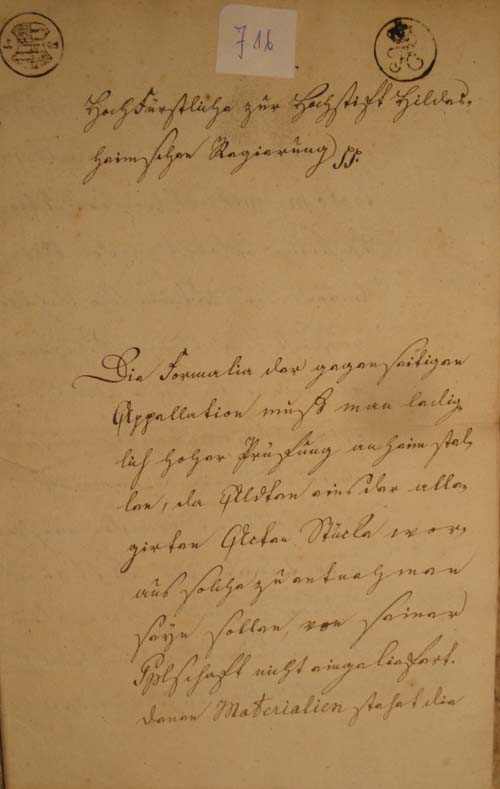 716
HochFürstliche zur Hochstift Hildes-
heimschen Regierung pp.
Die Formalia der gegenseitigen
Appellation muß man ledig-
lich hoher Prüfung anheim stel-
len, da Aldten eins der alle-
girten Acten Stücke wor-
aus solche zu entnehmen
seyn sollen, von seiner
schaft nicht eingeliefert.
denen Materialien stehet die